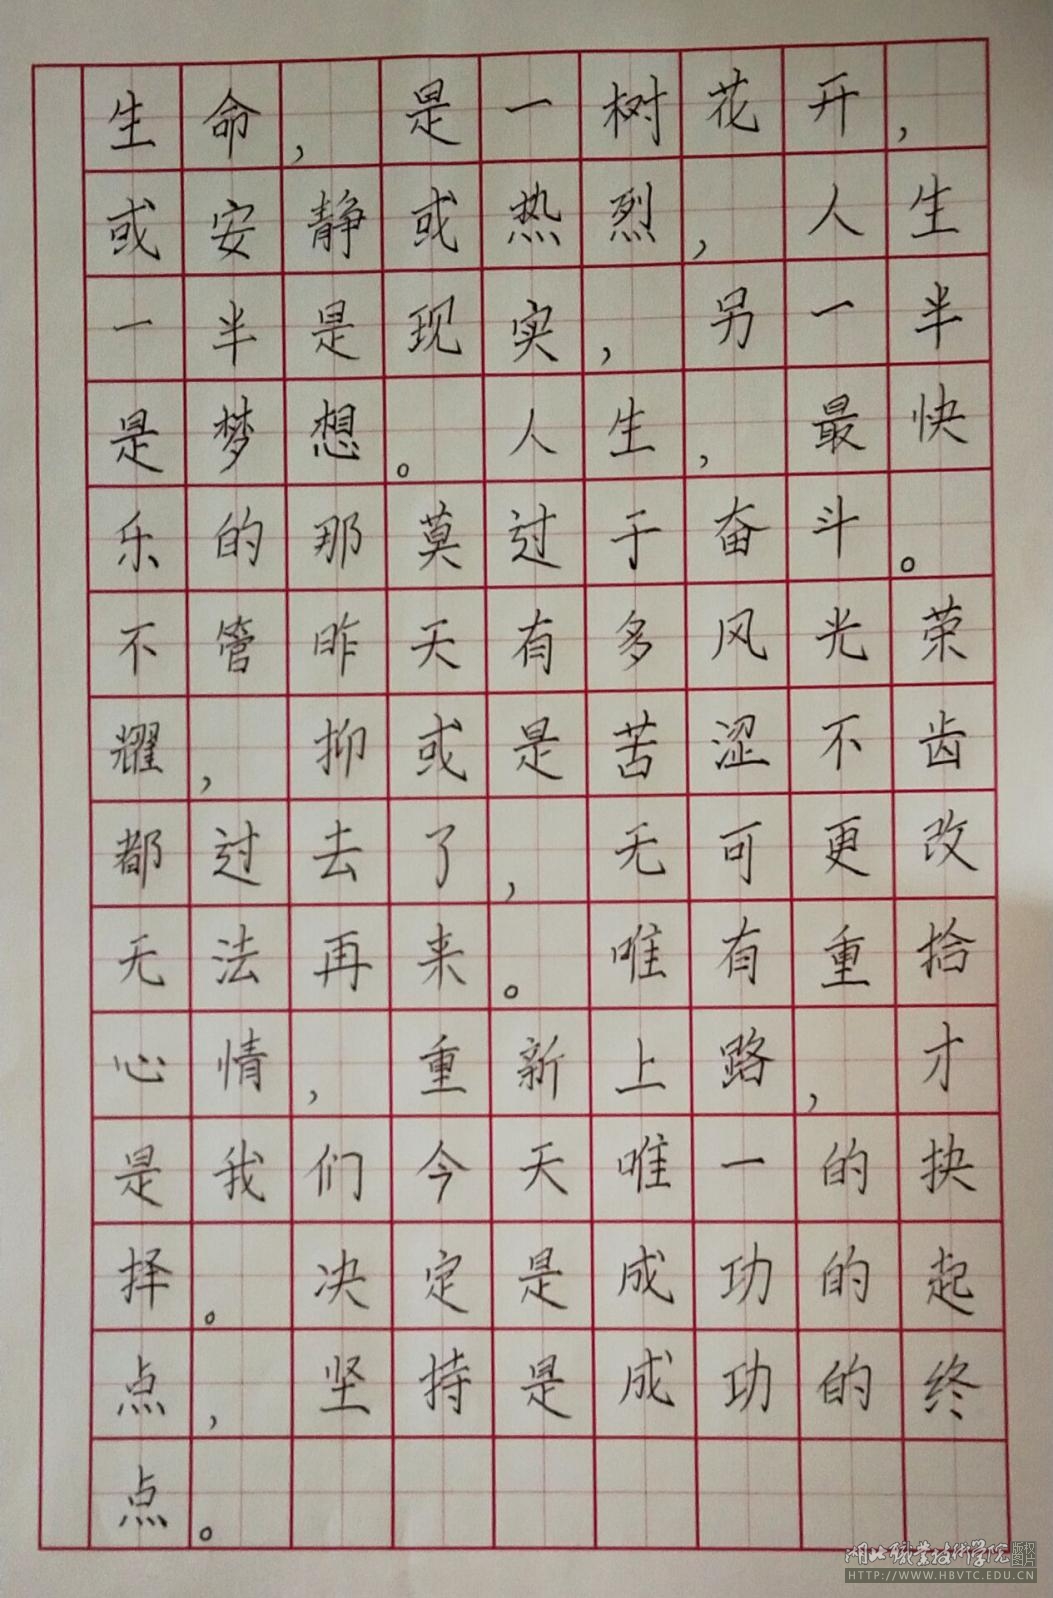 生命，是一树花开，
或安静或热烈，人生
一半是现实，另一半
是梦想。人生，最快
乐的那莫过于奋斗。
不管昨天有多风光荣
耀，抑或是苦涩不齿
都过去了，无可更改
无法再来。唯有重拾
心情，重新上路，才
是我们今天唯一的抉
择。决定是成功的起
点，坚持是成功的终
点。
湖北职业技术学院 版权图片
HTTP://WWW.HBVTC.EDU.CN